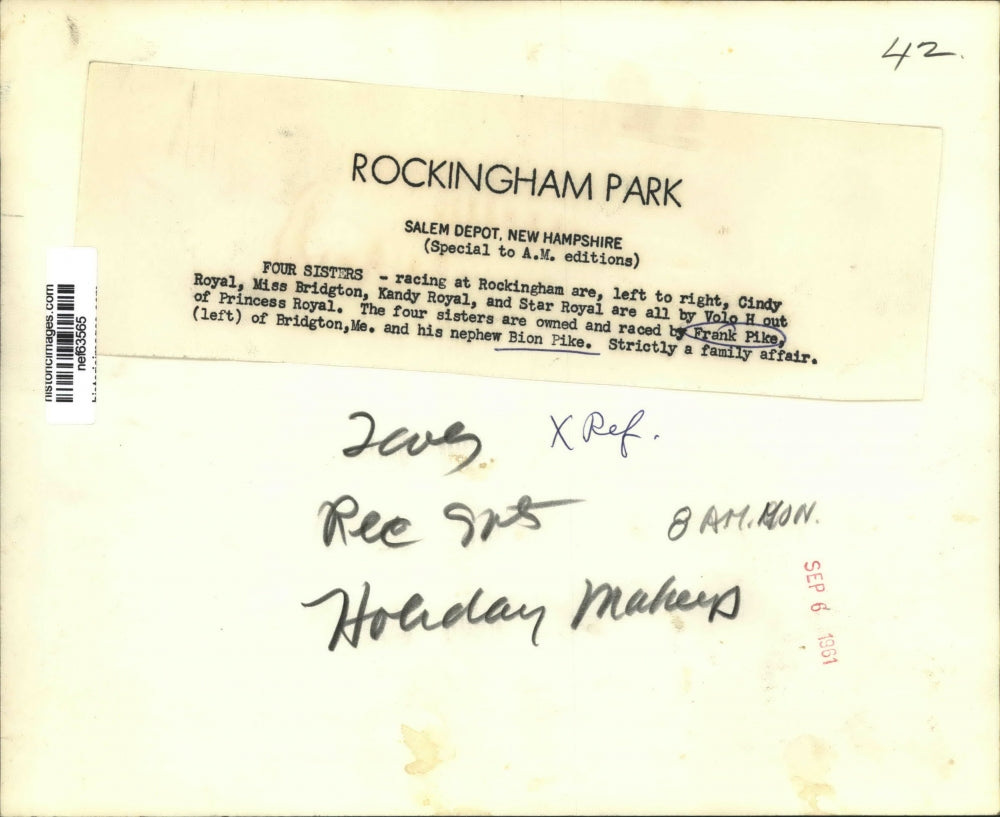 42.
ROCKINGHAM PARK
SALEM DEPOT, NEW HAMPSHIRE
(Special to A.M. editions)
FOUR SISTERS - racing at Rockingham are, left to right, Cindy
Royal, Miss Bridgton, Kandy Royal, and Star Royal are all by Volo H out
of Princess Royal. The four sisters are owned and raced by Frank Pike,
(left) of Bridgton,Me. and his nephew Bion Pike. Strictly a family affair.
historicimages.com
nef63565
X Ref.
Rec
8 AM. MON.
Holiday Makers
SEP 6 1961